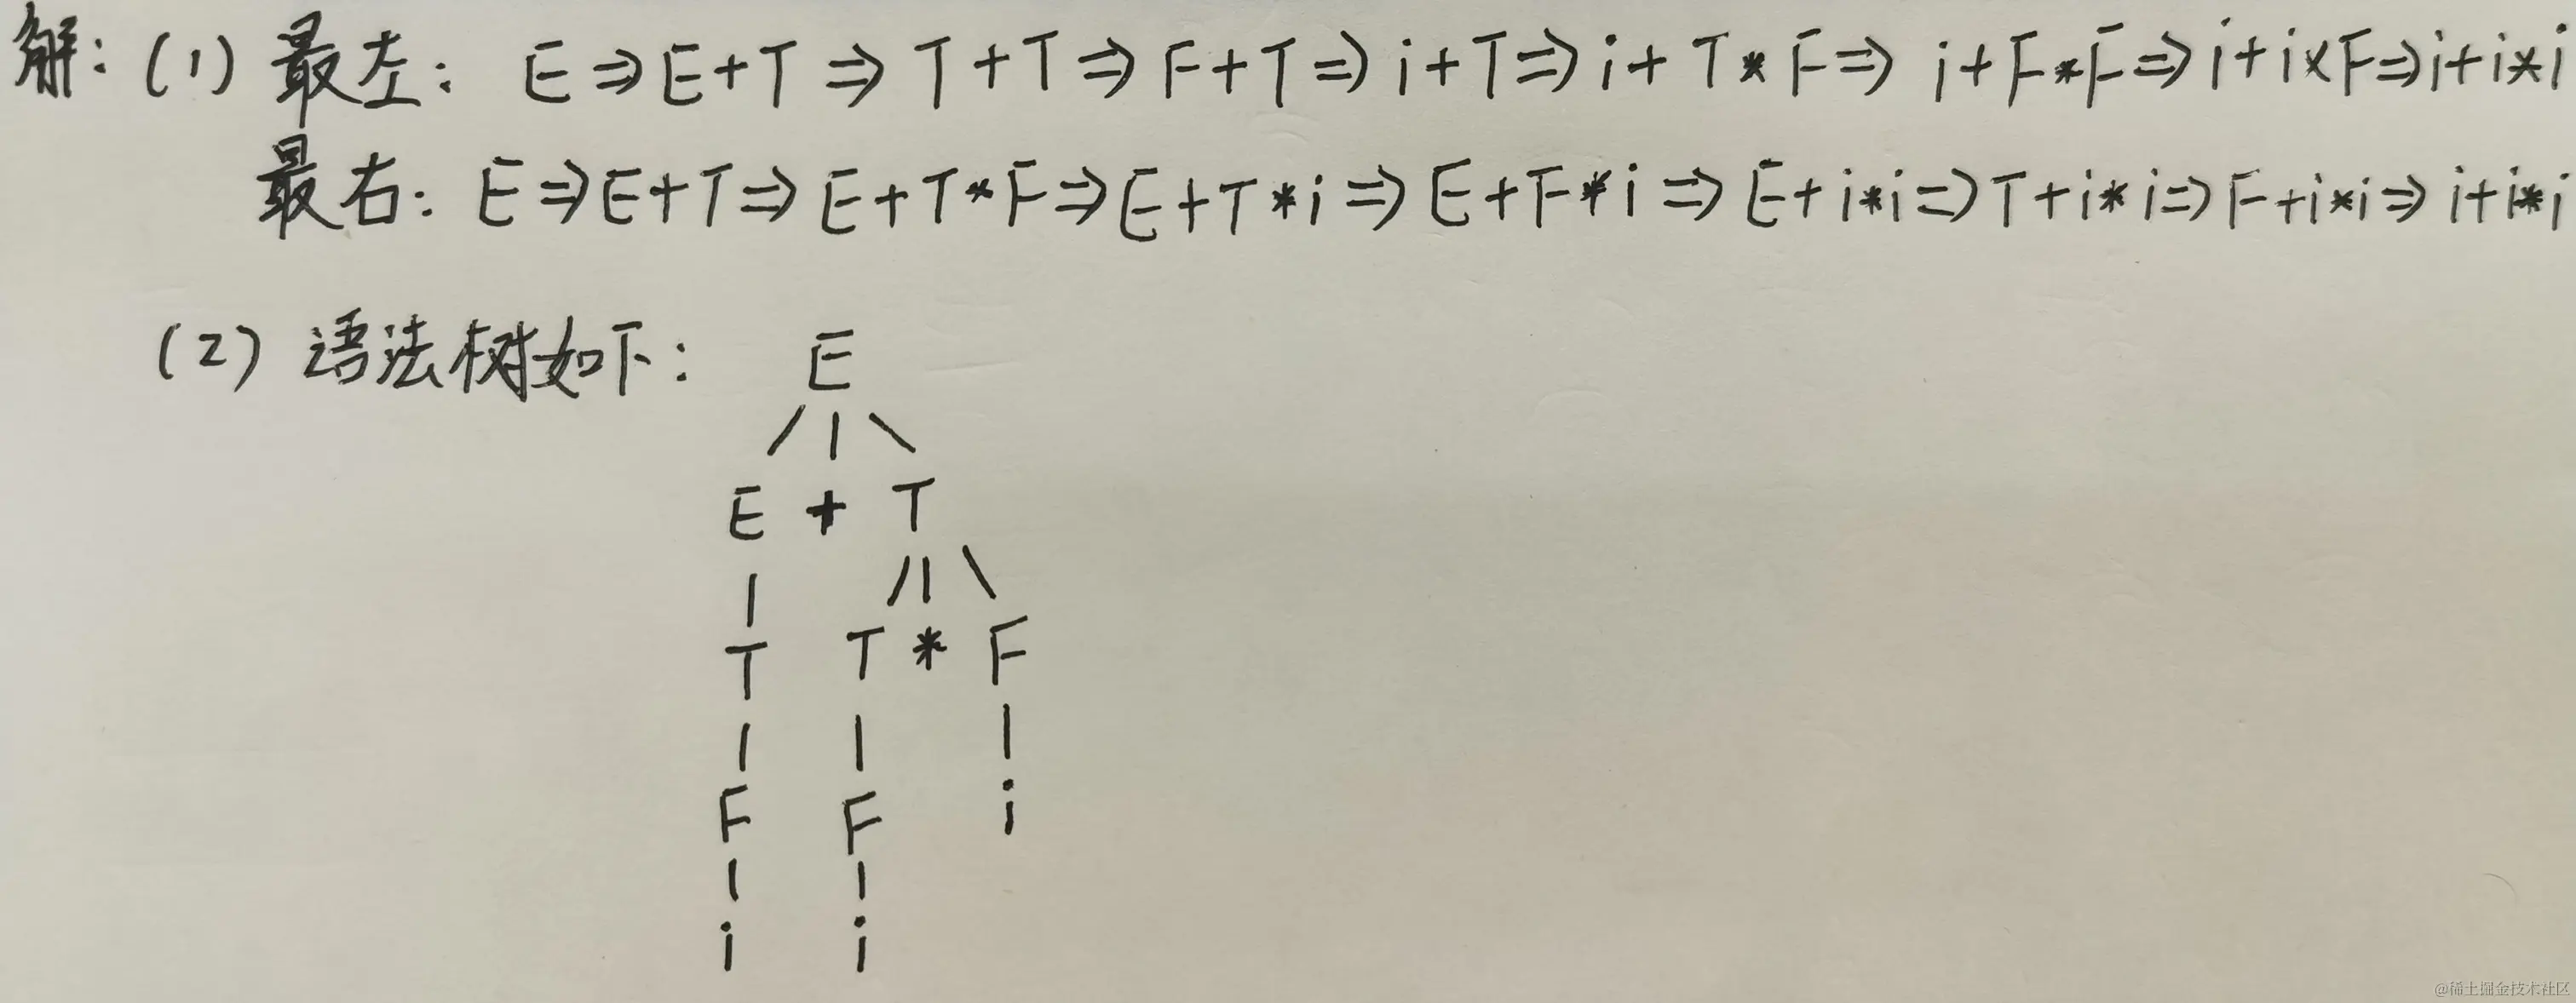 解：(1) 最左： E⇒E+T⇒T+T⇒F+T⇒i+T⇒i+T*F⇒i+F*F⇒i+i×F⇒i+i*i
最右：E⇒E+T⇒E+T*F⇒E+T*i⇒E+F*i⇒E+i*i⇒T+i*i⇒F+i*i⇒i+i*i
(2) 语法树如下： E
/ | \
E + T
| / | \
T T * F
| | |
F F i
| |
i i
@稀土掘金技术社区